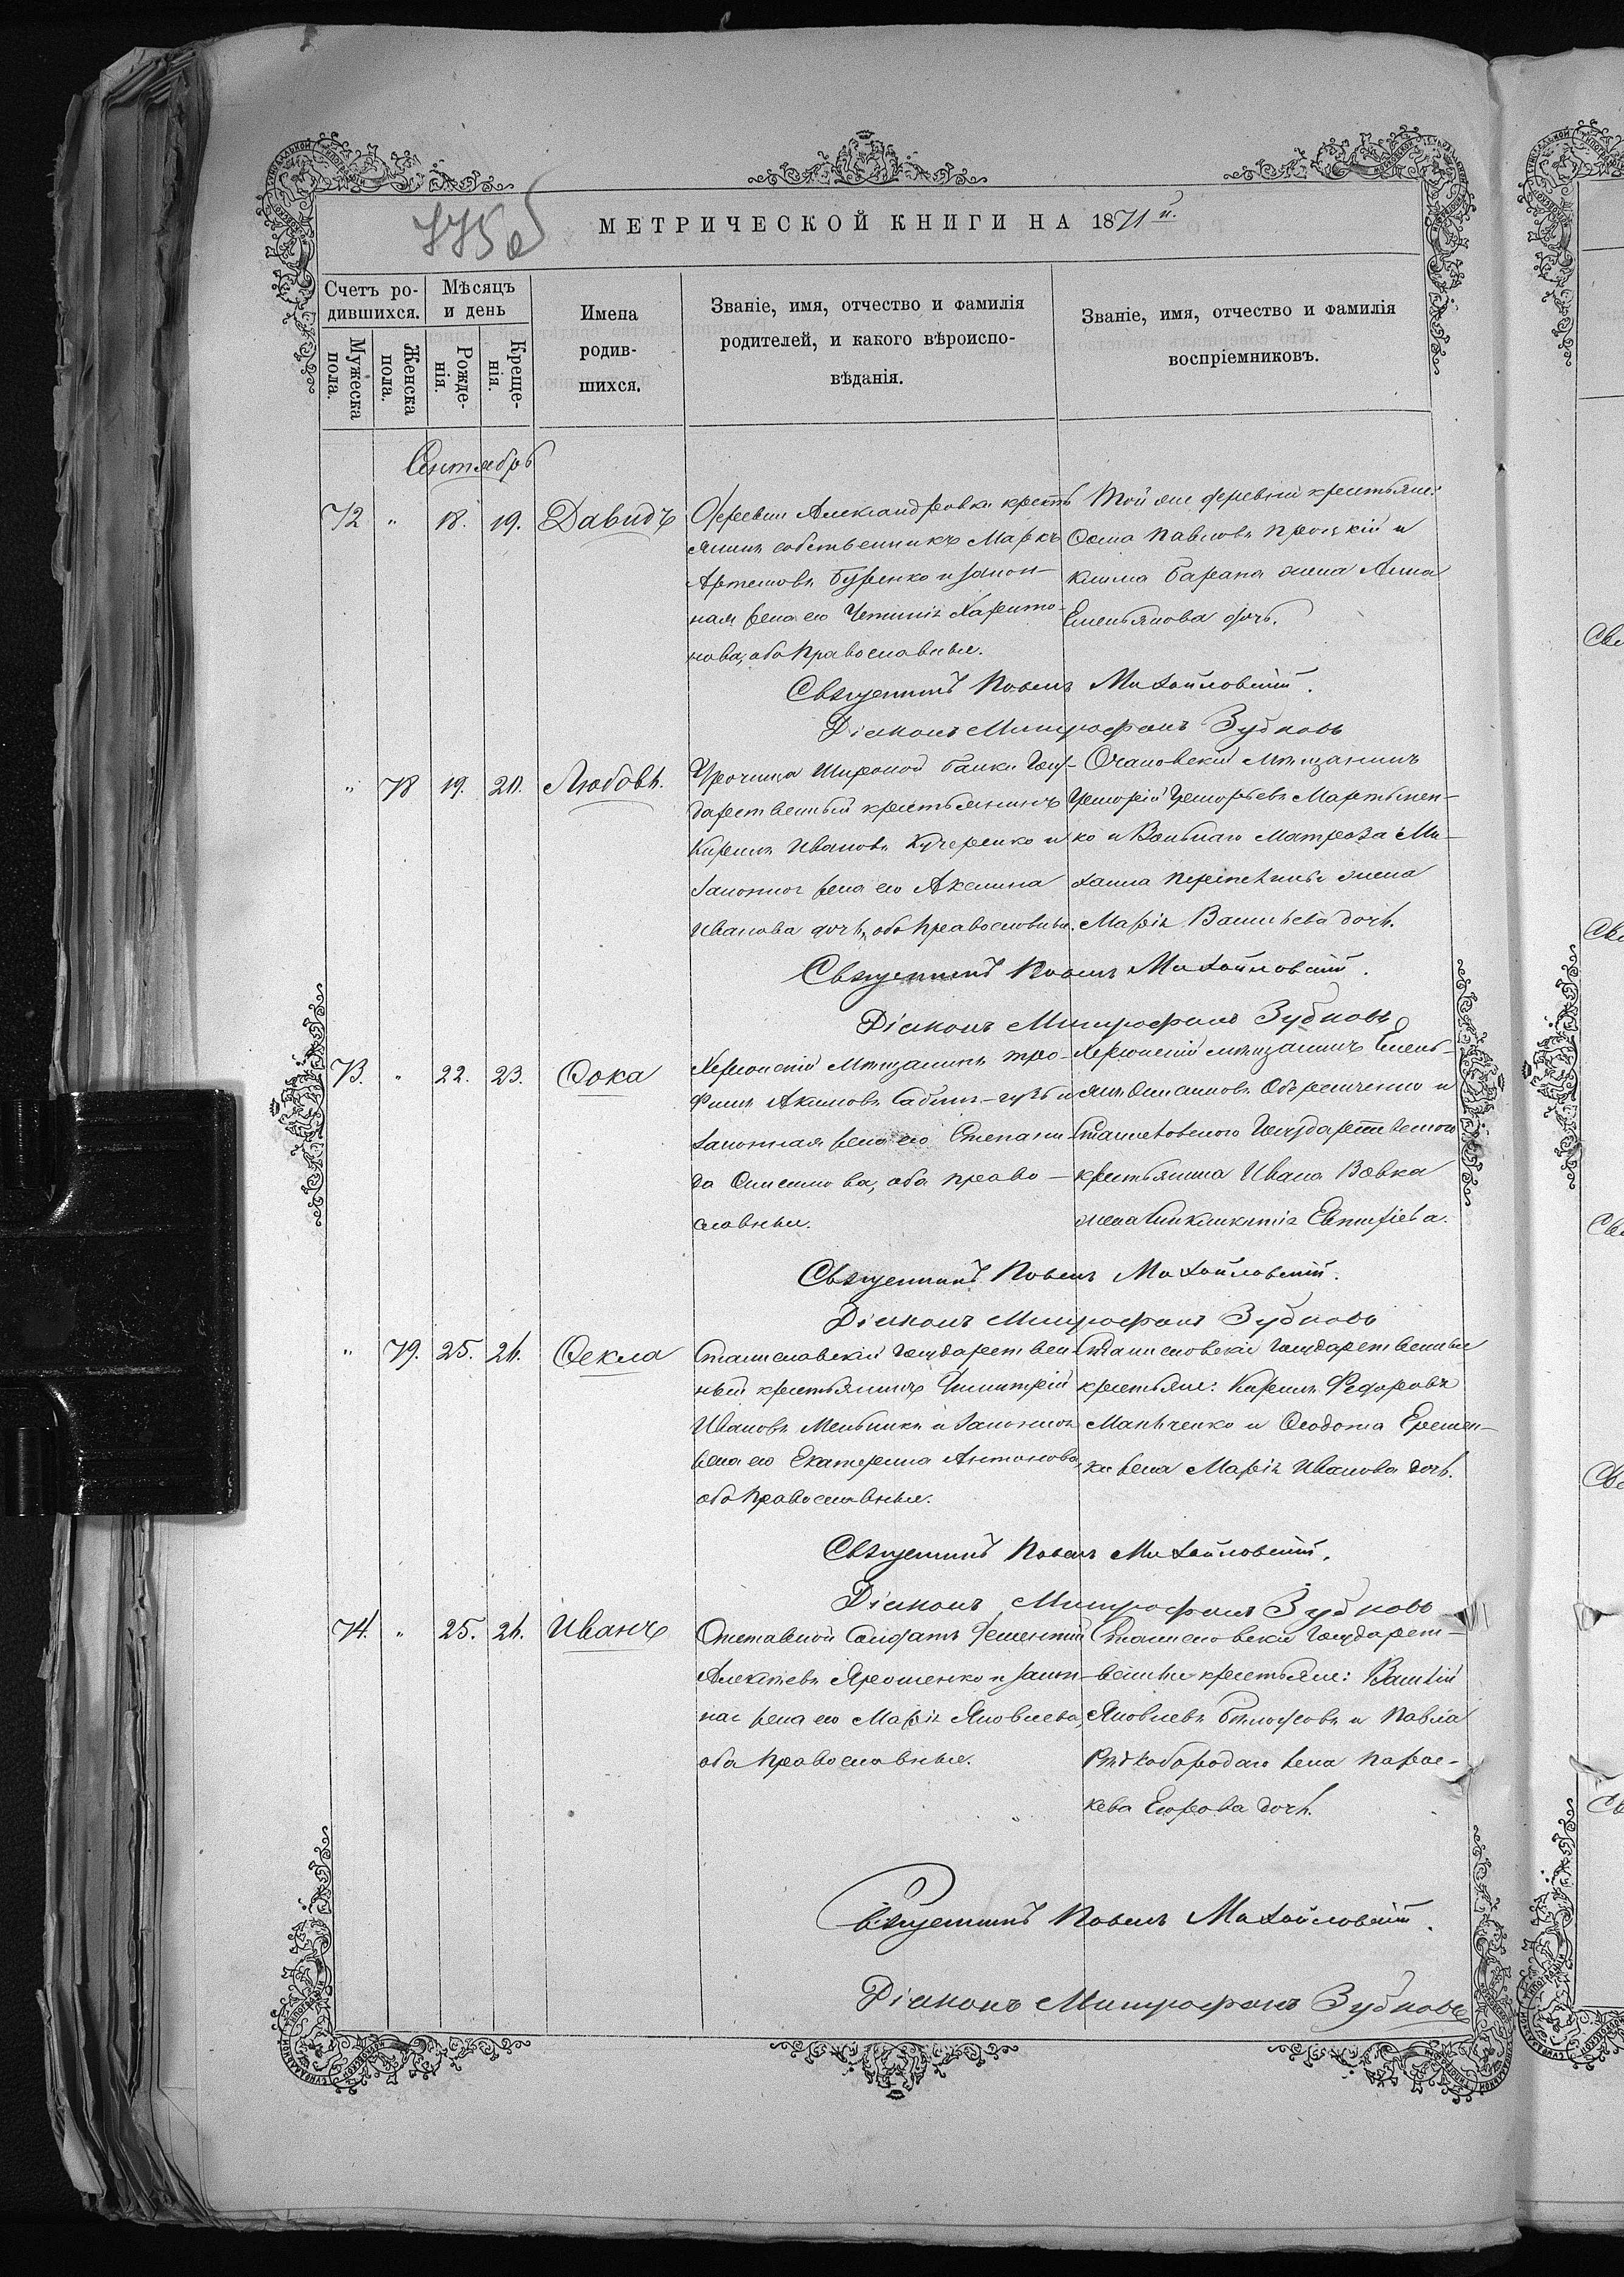 775 об
МЕТРИЧЕСКОЙ КНИГИ НА 1871й.
Счетъ ро-
дившихся.
Мѣсяцъ
и день
Мужеска
пола.
Женска
пола.
Рожде-
нія.
Креще-
нія.
Имена
родив-
шихся.
Званіе, имя, отчество и фамилія
родителей, и какого вѣроиспо-
вѣданія.
Званіе, имя, отчество и фамилія
воспріемниковъ.
Сентябрь
72 " 18. 19. Давидъ
Деревни Александровки кресть
янинъ собственникъ Маркъ
Артемовъ Буренко и закон-
ная жена его Харито-
нова, оба православные.
Той же деревни крестьяне:
Ѳома Павловъ Процкій и
Клима Барана жена Анна
Емельянова дочь.
Священникъ Павелъ Михайловскій.
Діаконъ Митрофанъ Зубковъ
" 78 19. 20. Любовь.
Урочища Широкой балки Госу-
дарственный крестьянинъ
Кириллъ Ивановъ Кучеренко и
законная жена его Акилина
Иванова дочь, оба православные.
Очаковскій мѣщанинъ
Григорій Григорьевъ Мартынен-
ко и Вольнаго Матроза Ми-
хаила жена
Марія Васильева дочь.
Священникъ Павелъ Михайловскій.
Діаконъ Митрофанъ Зубковъ
73. " 22. 23. Ѳока
Херсонскій мѣщанинъ Тро-
фимъ Акимовъ и
законная жена его Степани
да Онисимова, оба право-
славные.
Херсонскій мѣщанинъ Емель-
янъ и
Станиславского Государственнаго
крестьянина Ивана Вовка
жена Евтифіева.
Священникъ Павелъ Михайловскій.
Діаконъ Митрофанъ Зубковъ
" 79. 25. 26. Ѳекла
Станиславскій Государствен
ный крестьянинъ Димитрій
Ивановъ Мельникъ и законная
жена его Екатерина Антонова,
оба православные.
Станиславскіе Государственные
крестьяне: Кириллъ Федоровъ
и Ѳеодота Еремен-
ка жена Марія Иванова дочь.
Священникъ Павелъ Михайловскій.
Діаконъ Митрофанъ Зубковъ
74. " 25. 26. Иванъ
Отставной Солдатъ
Алексѣевъ Ярошенко и закон-
ная жена его Марія Яковлева,
оба православные.
Станиславскіе Государст-
венные крестьяне: Василій
Яковлевъ и Павла
Рѣдкобородаго жена Парас-
кева Егорова дочь.
Священникъ Павелъ Михайловскій.
Діаконъ Митрофанъ Зубковъ